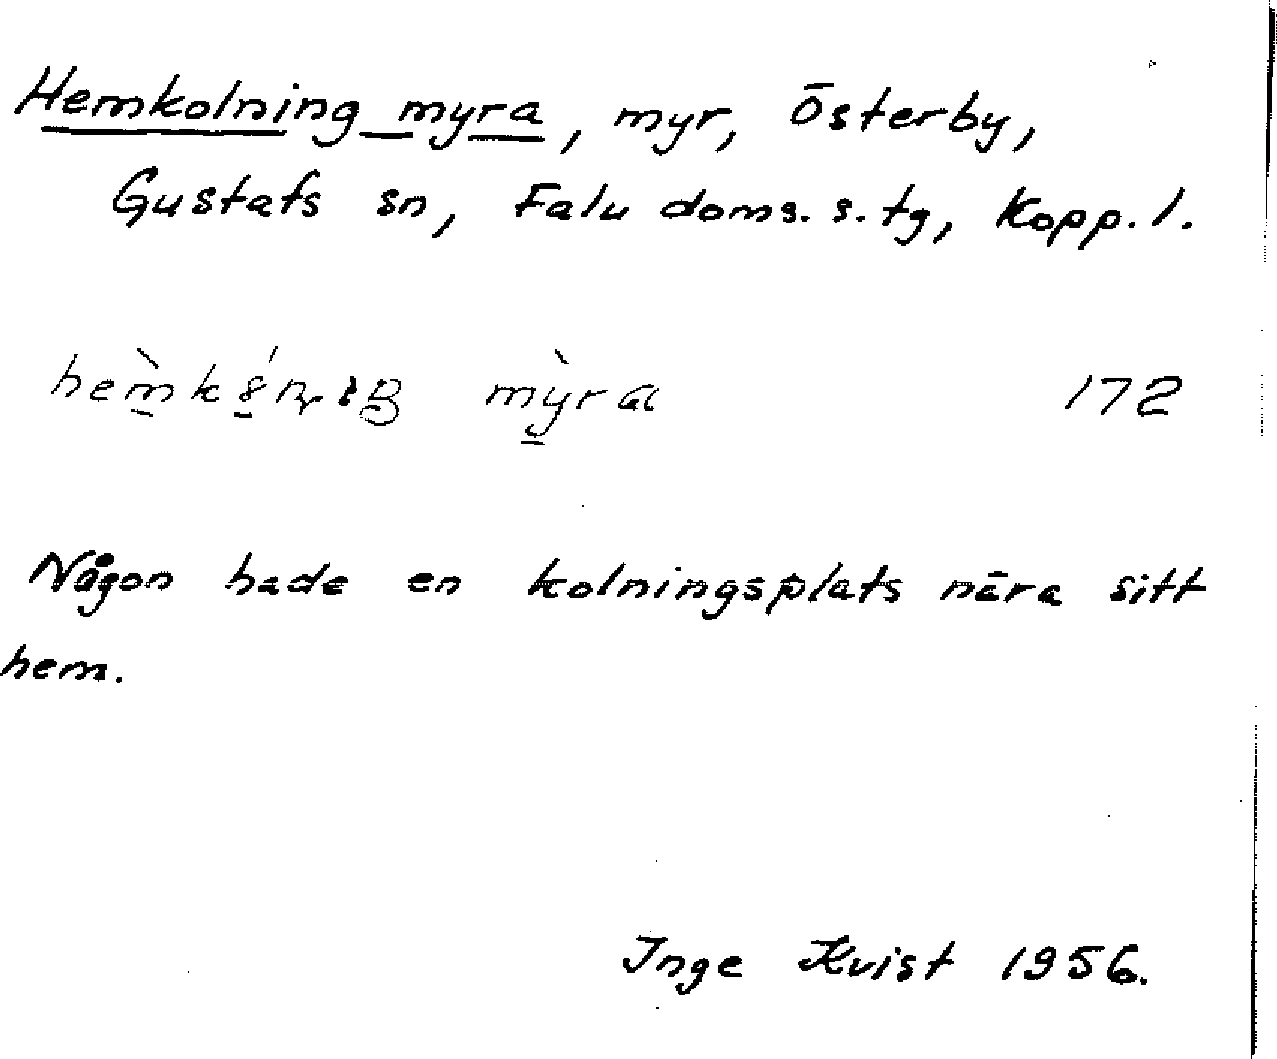 Hemkolning myra, myr, Österby,
Gustafs sn, Falu doms. s. tg, Kopp. l.
myra 172
Någon hade en kolningsplats nära sitt
hem.
Inge Kvist 1956.